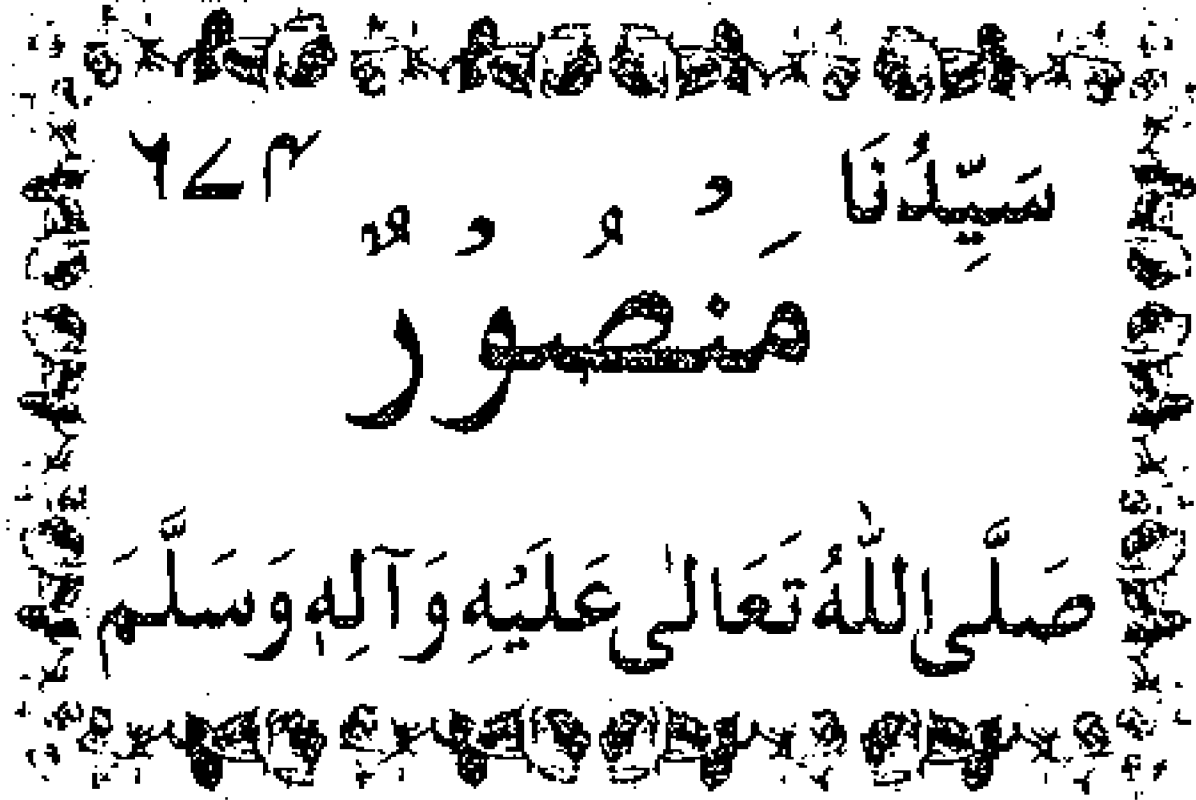 سَيِّدُنَا ۶۷۴
مَنصُوْرٌ
صَلَّى اللّٰهُ تَعَالٰى عَلَيْهِ وَآلِهٖ وَسَلَّمَ